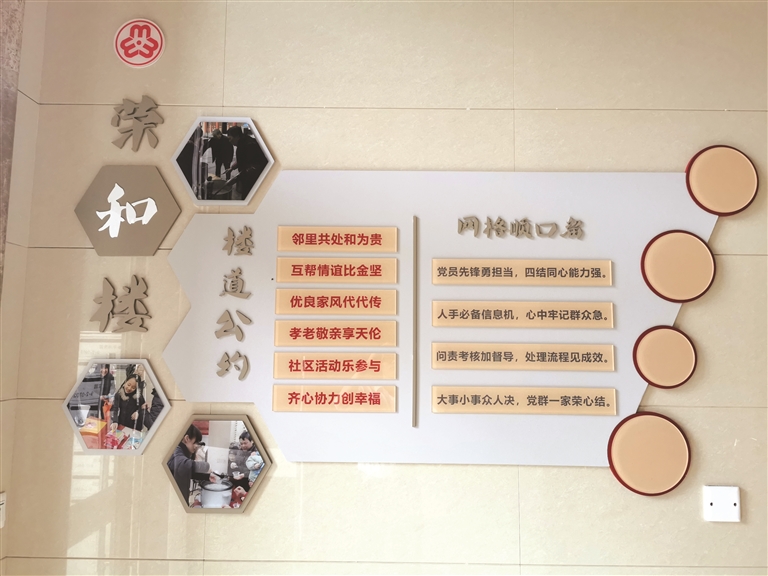 荣和楼
楼道公约
邻里共处和为贵
互帮情谊比金坚
优良家风代代传
孝老敬亲享天伦
社区活动乐参与
齐心协力创幸福
网格顺口溜
党员先锋勇担当，四结同心能力强。
人手必备信息机，心中牢记群众急。
问责考核加督导，处理流程见成效。
大事小事众人决，党群一家荣心结。